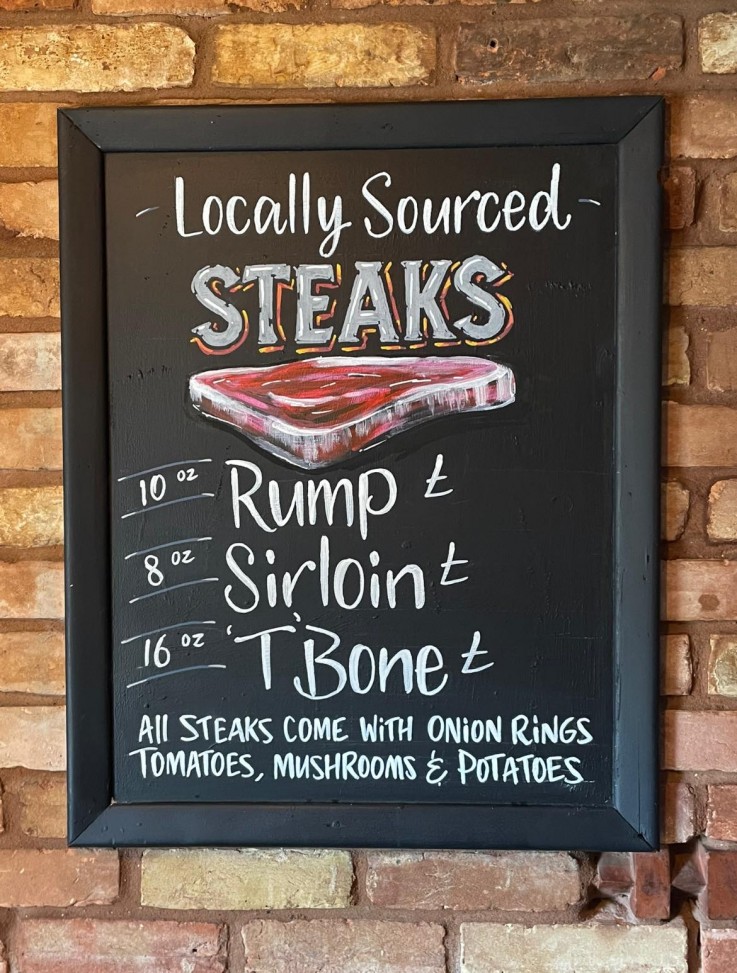 - Locally Sourced -
STEAKS
10 oz Rump £
8 oz Sirloin £
16 oz 'T' Bone £
All STEAKS COME WiTH ONiON RiNGS
TOMATOES, MUSHROOMS & POTATOES